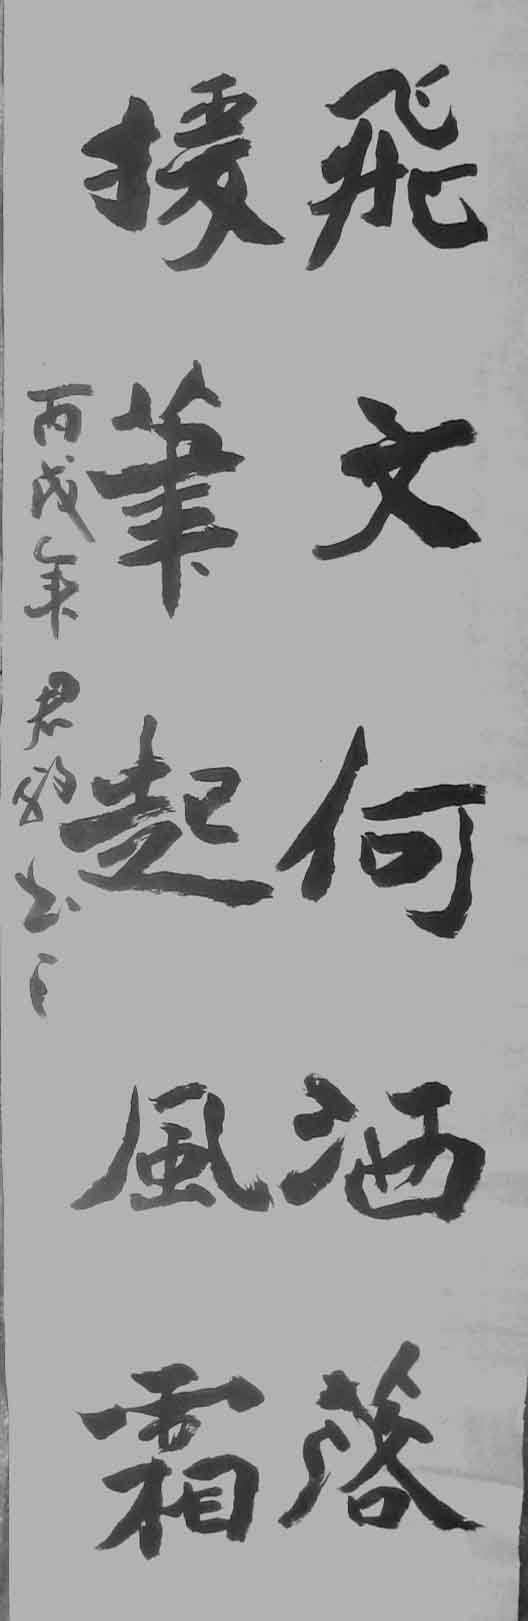 飛文何洒落
援筆起風霜
丙戌年君 书